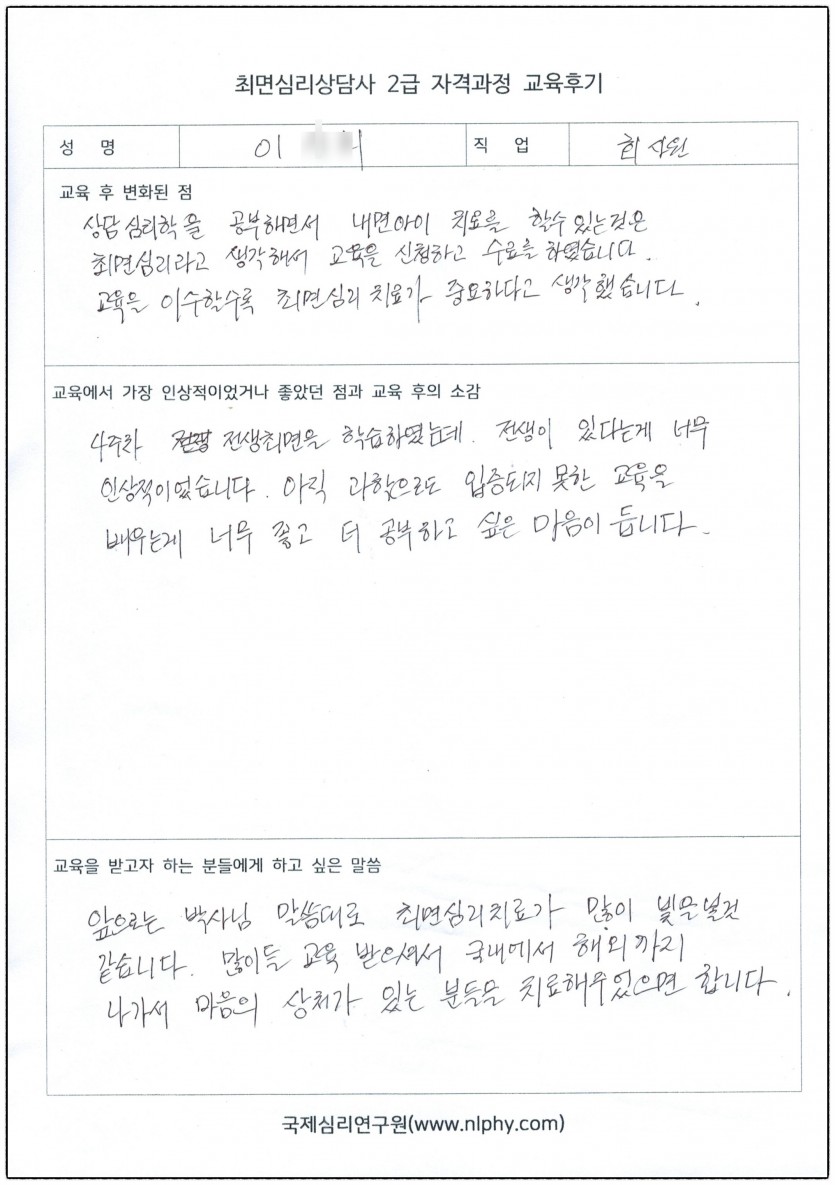 최면심리상담사 2급 자격과정 교육후기
성 명 이 직 업 회사원
교육 후 변화된 점
상담 심리학을 공부하면서 내면아이 치료를 할수 있는것은
최면심리라고 생각해서 교육을 신청하고 수료를 하였습니다.
교육을 이수할수록 최면심리 치료가 중요하다고 생각했습니다.
교육에서 가장 인상적이었거나 좋았던 점과 교육 후의 소감
4주차 전생최면을 학습하였는데. 전생이 있다는게 너무
인상적이었습니다. 아직 과학으로도 입증되지 못한 교육을
배우는게 너무 좋고 더 공부하고 싶은 마음이 듭니다.
교육을 받고자 하는 분들에게 하고 싶은 말씀
앞으로는 박사님 말씀대로 최면심리치료가 많이 빛을 낼것
같습니다. 많이들 교육 받으셔서 국내에서 해외까지
나가서 마음의 상처가 있는 분들을 치료해주었으면 합니다.
국제심리연구원(www.nlphy.com)